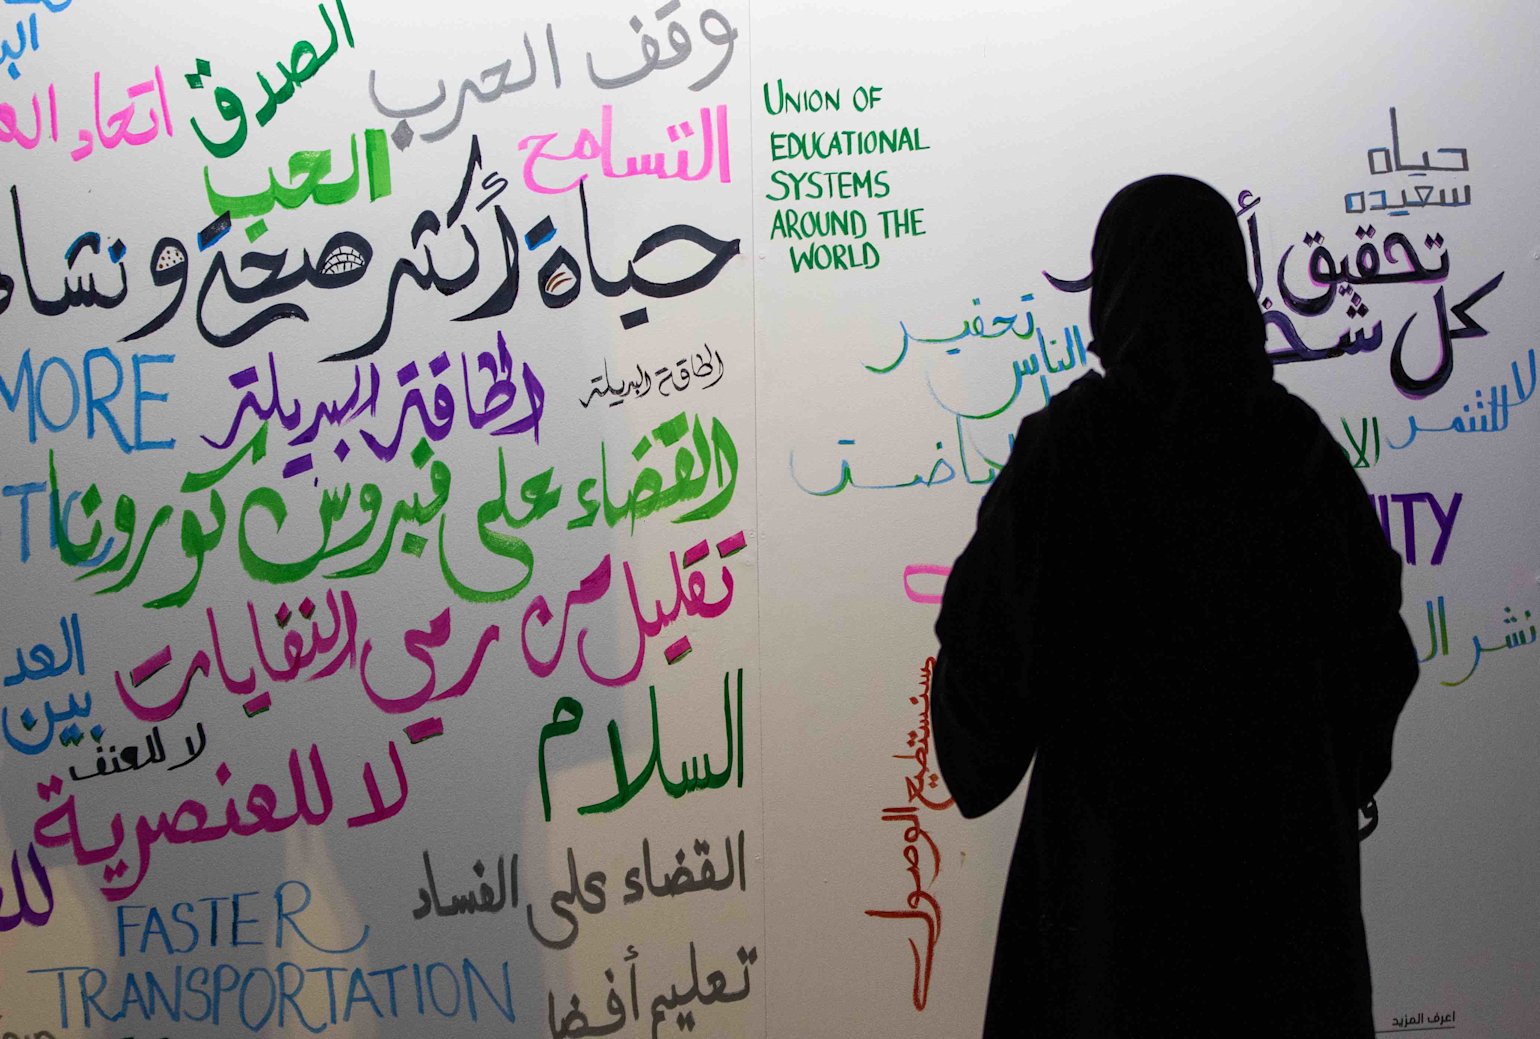 الصدق
وقف الحرب
اتحاد
الحب
التسامح
حياة أكثر صحة و
MORE
الطاقة البديلة
الطاقة البديلة
القضاء على فيروس كورونا
تقليل من رمي النفايات
بين
لا للعنف
السلام
لا للعنصرية
القضاء على الفساد
FASTER
TRANSPORTATION
تعليم
UNION OF
EDUCATIONAL
SYSTEMS
AROUND THE
WORLD
حياه
سعيده
تحقيق
كل
تحفيز
الناس
لا للتنمر
نشر
سنستطيع الوصول
اعرف المزيد